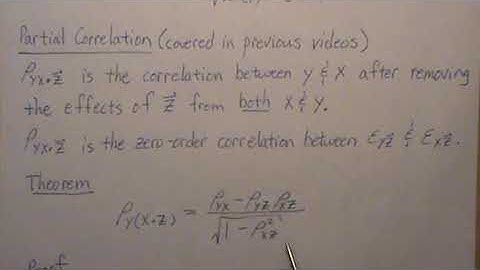 Partial Correlation (covered in previous videos)
ρyx•z⃗ is the correlation between y & x after removing
the effects of z⃗ from both x & y.
ρyx•z⃗ is the zero-order correlation between εyz⃗ & εxz⃗.
Theorem
ρy(x•z) = (ρyx − ρyz ρxz) / √(1 − ρ²xz)
Proof